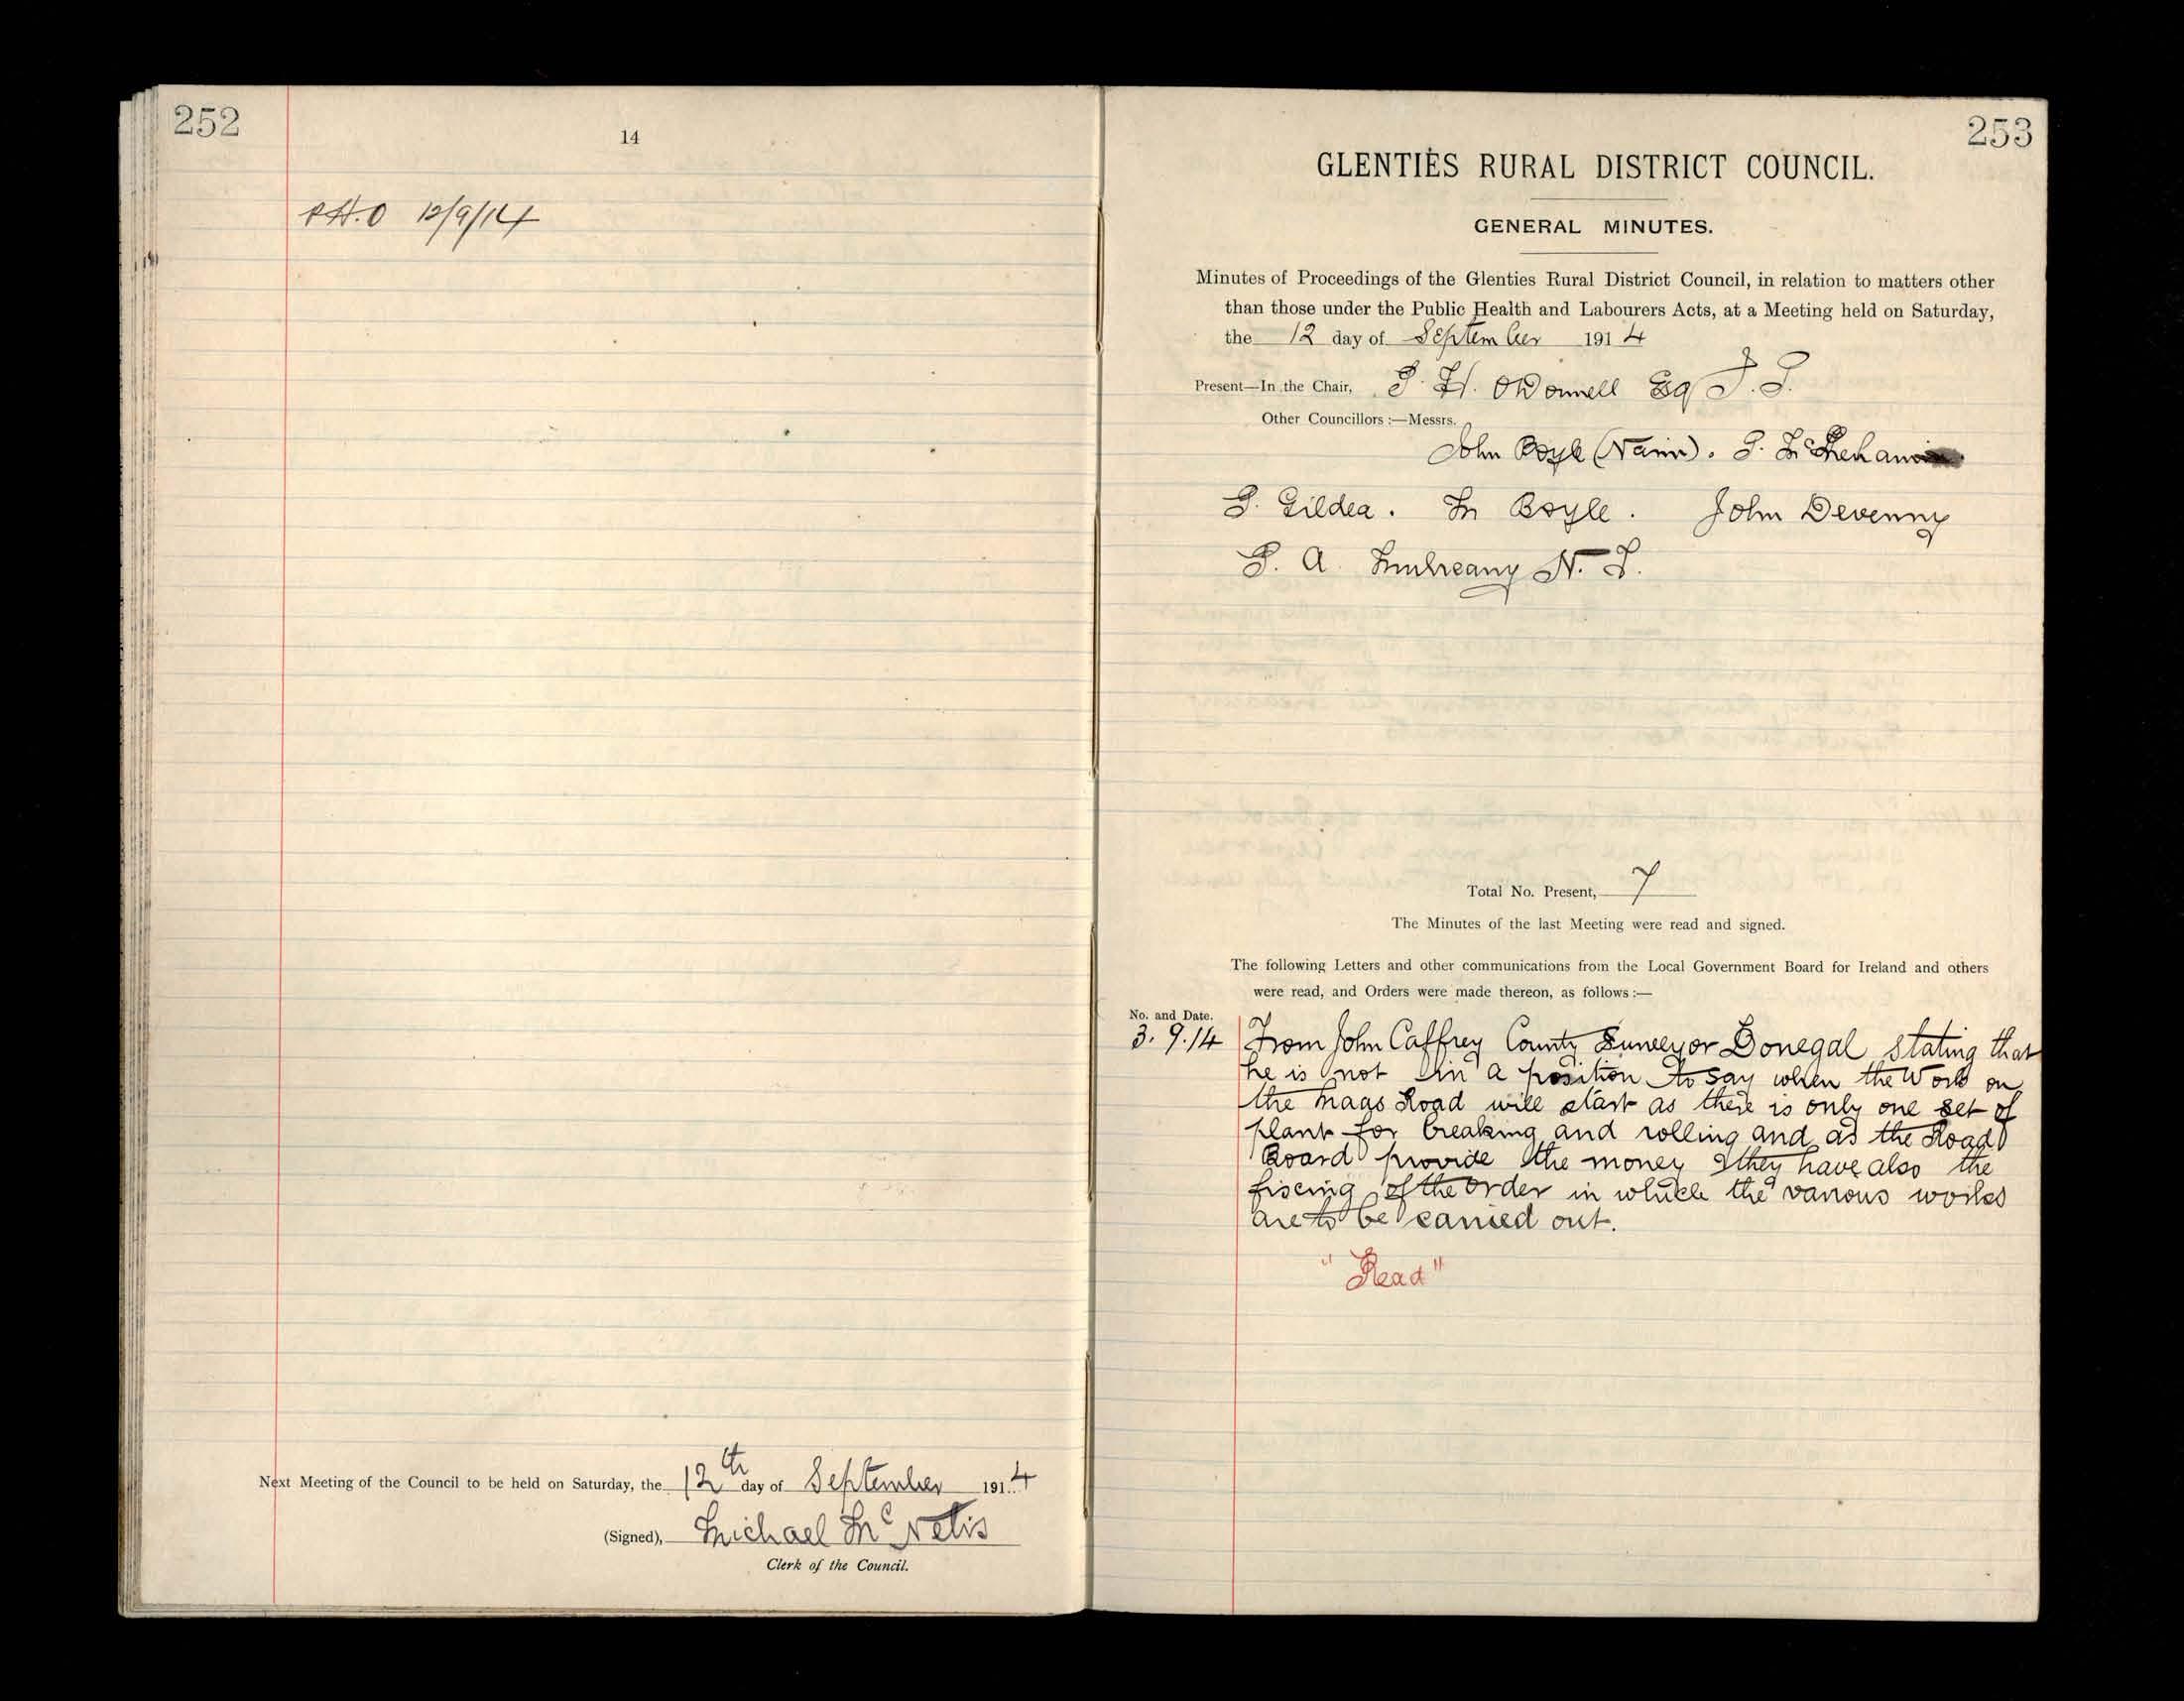 252
14
P.H.O 12/9/14
Next Meeting of the Council to be held on Saturday, the 12th day of September 1914
(Signed), Michael McNelis
Clerk of the Council.
253
GLENTIES RURAL DISTRICT COUNCIL.
GENERAL MINUTES.
Minutes of Proceedings of the Glenties Rural District Council, in relation to matters other
than those under the Public Health and Labourers Acts, at a Meeting held on Saturday,
the 12 day of September 1914
Present—In the Chair, P. H. O'Donnell Esq J. P.
Other Councillors :—Messrs.
John Boyle (Narin). P.
P. Gildea. M Boyle. John Devenny
P. A. Mulreany N. T.
Total No. Present, 7
The Minutes of the last Meeting were read and signed.
The following Letters and other communications from the Local Government Board for Ireland and others
were read, and Orders were made thereon, as follows :—
No. and Date.
3. 9. 14 From John Caffrey County Surveyor Donegal stating that
he is not in a position to say when the Work on
the Maas Road will start as there is only one set of
plant for breaking and rolling and as the Road
Board provide the money they have also the
fixing of the order in which the various works
are to be carried out.
"Read"